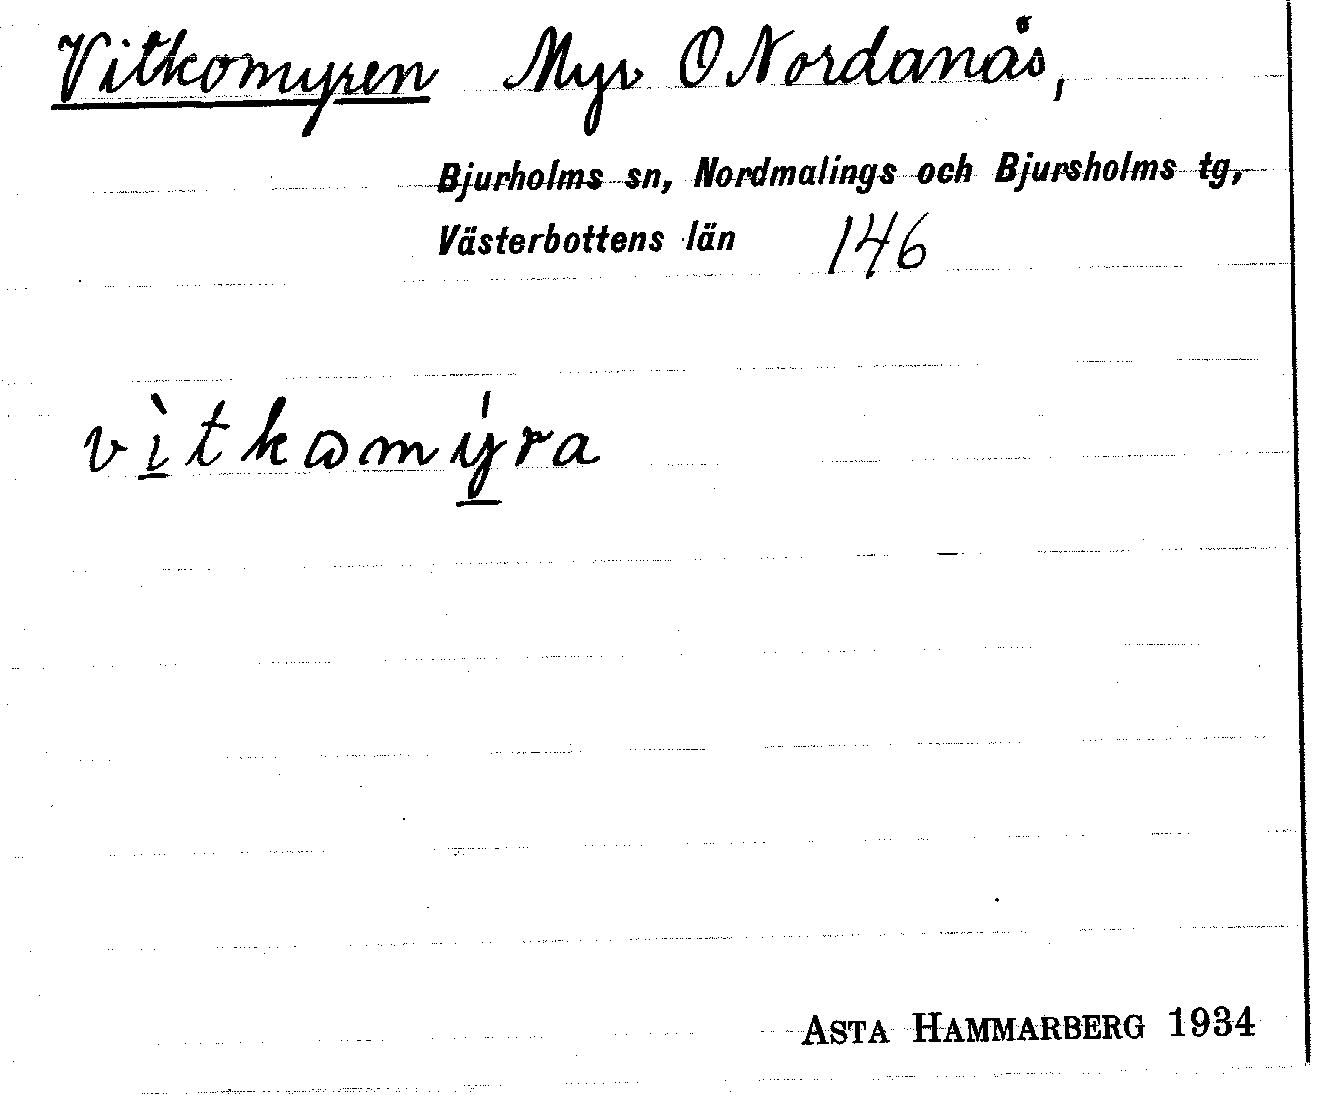 Vitkomyren Myr O Nordanås,
Bjurholms sn, Nordmalings och Bjursholms tg,
Västerbottens län 146
vìtkωmýra
ASTA HAMMARBERG 1934